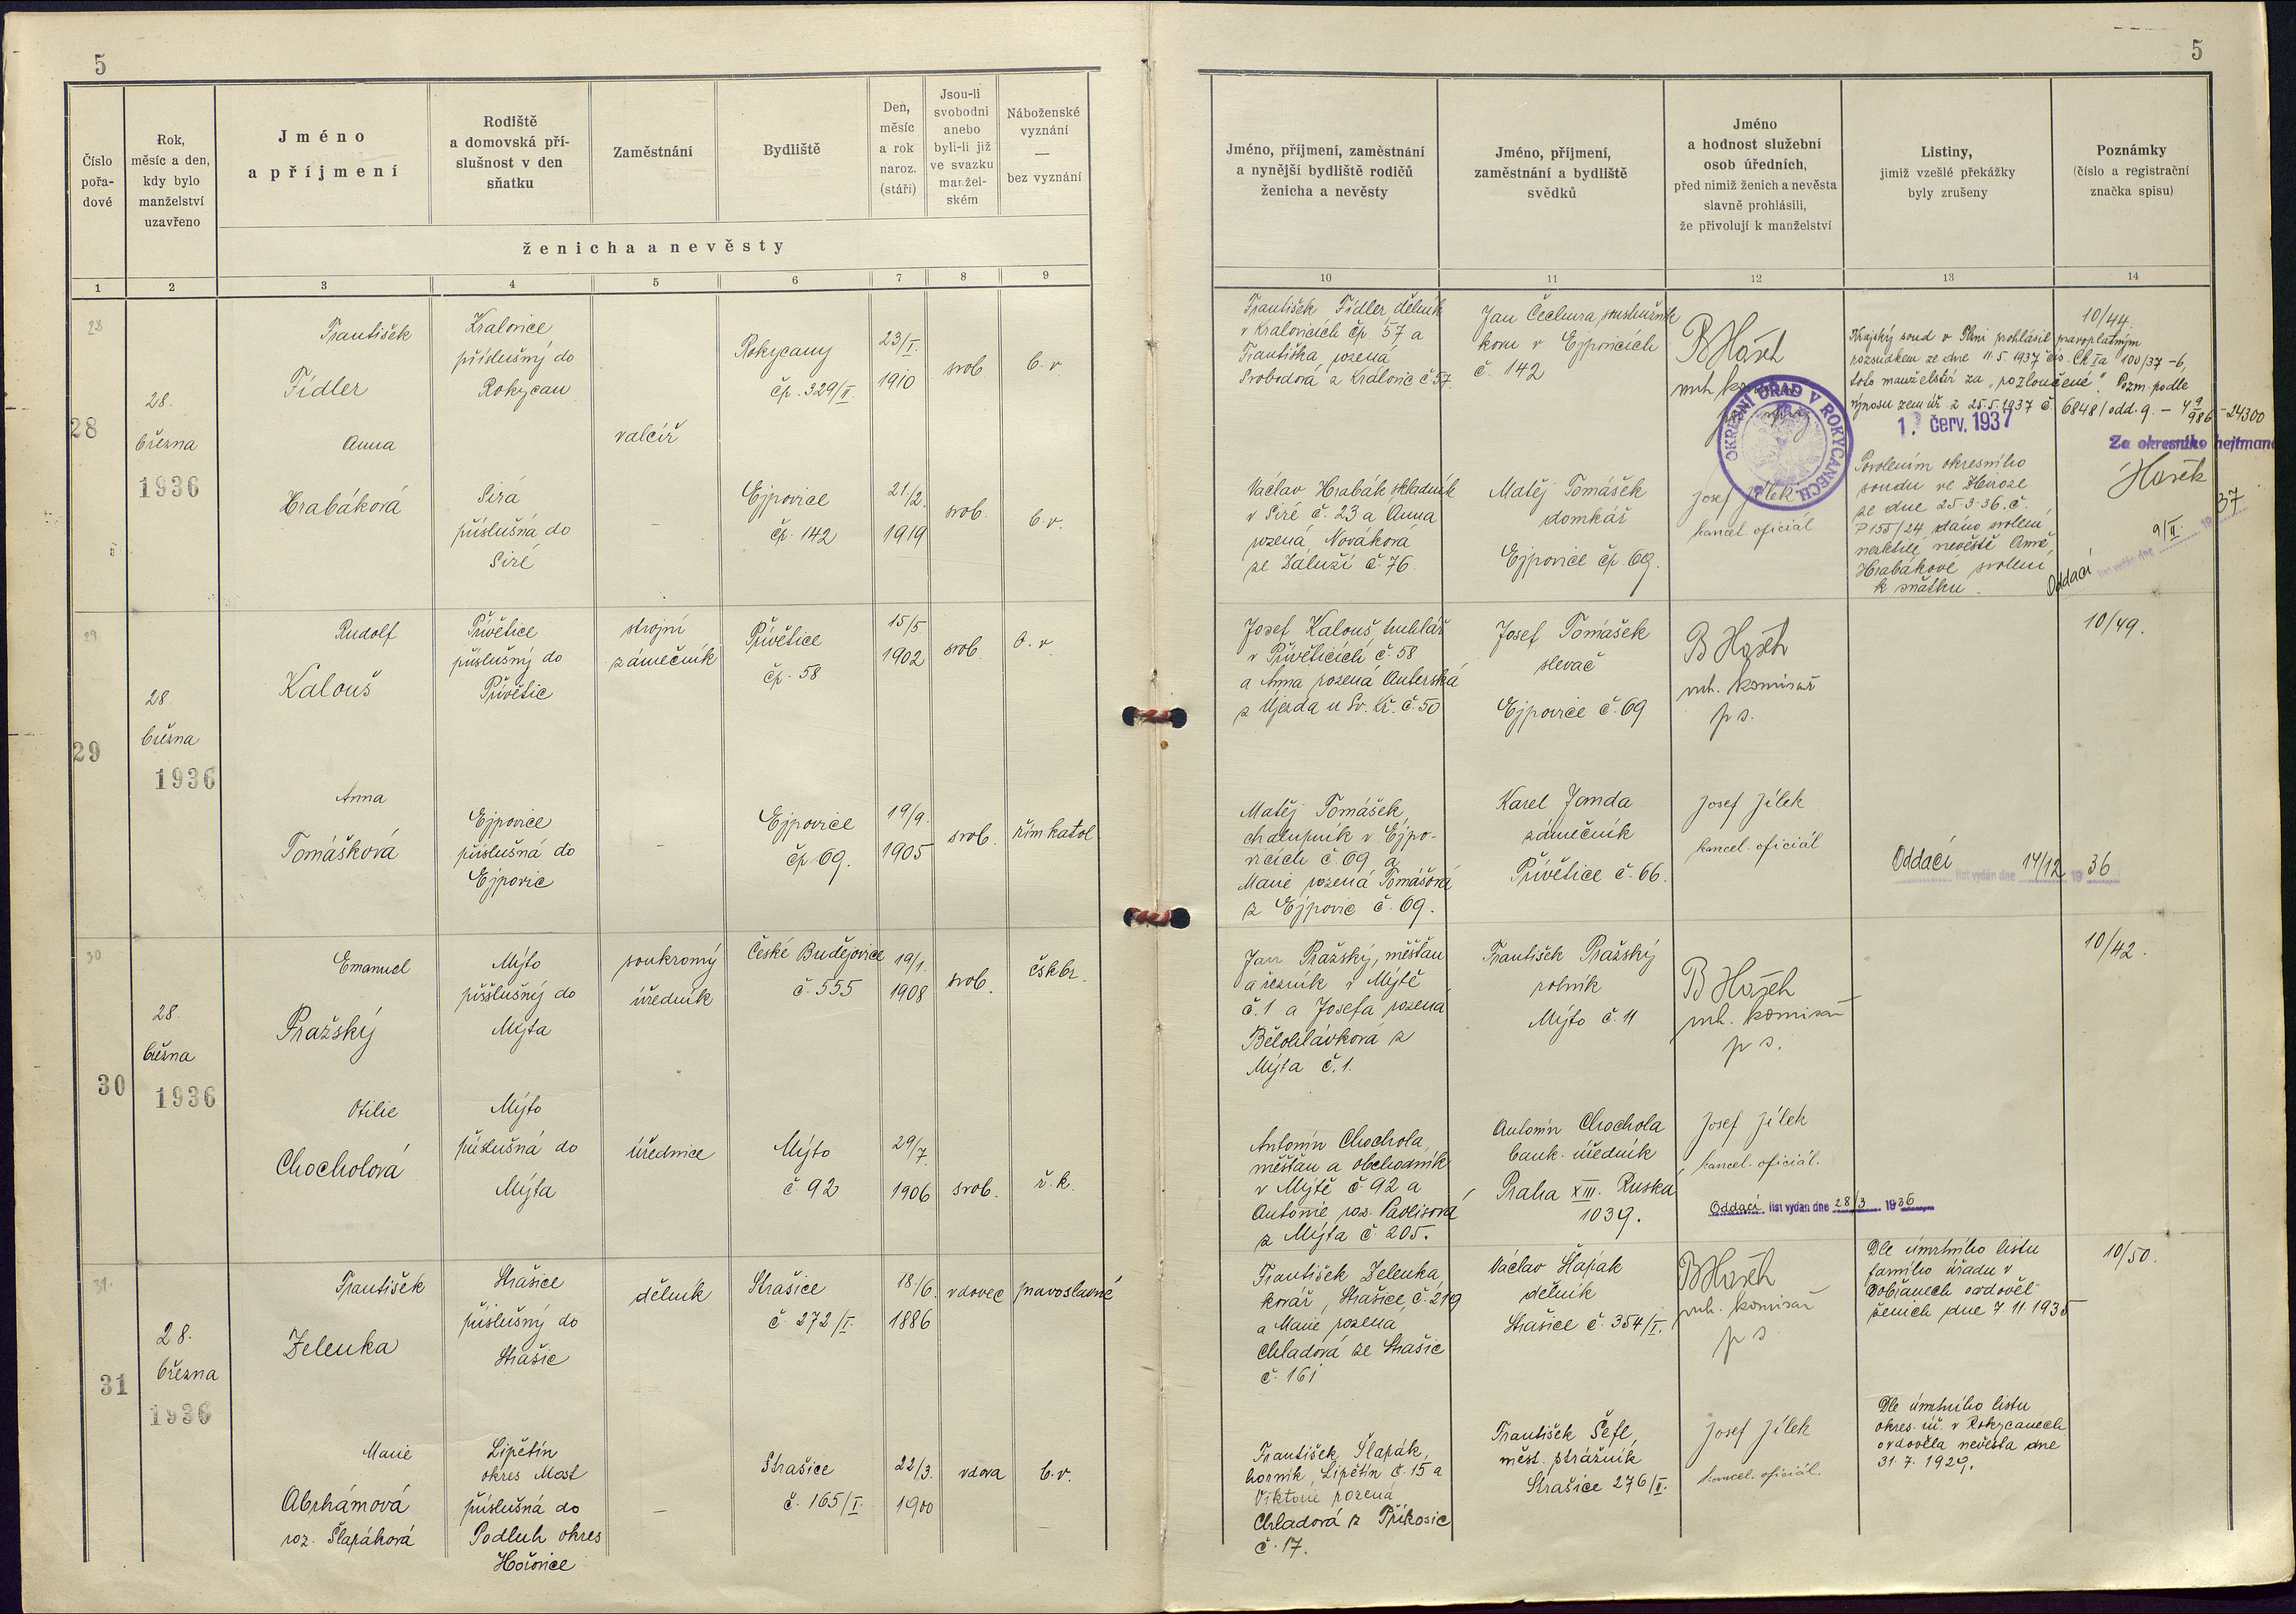 5
5
Číslo
pořa-
dové
Rok,
měsíc a den,
kdy bylo
manželství
uzavřeno
Jméno
a příjmení
Rodiště
a domovská pří-
slušnost v den
sňatku
Zaměstnání
Bydliště
Den,
měsíc
a rok
naroz.
(stáří)
Jsou-li
svobodni
anebo
byli-li již
ve svazku
manžel-
ském
Náboženské
vyznání
—
bez vyznání
ženicha a nevěsty
Jméno, příjmení, zaměstnání
a nynější bydliště rodičů
ženicha a nevěsty
Jméno, příjmení,
zaměstnání a bydliště
svědků
Jméno
a hodnost služební
osob úředních,
před nimiž ženich a nevěsta
slavně prohlásili,
že přivolují k manželství
Listiny,
jimiž vzešlé překážky
byly zrušeny
Poznámky
(číslo a registrační
značka spisu)
1 2 3 4 5 6 7 8 9 10 11 12 13 14
28
28
28.
března
1936
František
Fidler
Kralovice
příslušný do
Rokycan
valcíř
Rokycany
čp. 329/II.
23/I.
1910
svob
b. v.
František Fidler, dělník
v Kralovicích čp. 57 a
Františka rozená
Svobodová z Kralovic č 57.
Jan Čechura
kovu v Ejpovicích
č. 142
B Hašek
OKRESNÍ ÚŘAD V ROKYCANECH
10/44.
Krajský soud v Plzni prohlásil pravoplatným
rozsudkem ze dne 11.5.1937 čís. Ck Ia 100/37-6,
toto manželství za "rozloučené". Pozm. podle
výnosu zem. úř. z 25.5.1937 č. 6848/odd. 9. -
24300
1. červ. 1937
Za okresního hejtmana
Hašek
Anna
Hrabáková
Sirá
příslušná do
Siré
-
Ejpovice
čp. 142
21/2.
1919
svob.
b. v.
Václav Hrabák skladník
v Siré č. 23 a Anna
rozená Nováková
ze Záluží č. 76
Matěj Tomášek
domkář
Ejpovice čp. 69.
Josef Jílek
kancel. oficiál
Povolením okresního
soudu ve Zbiroze
ze dne 25.3.36. č.
P 155/24 dáno svolení
nezletilé nevěstě Anně
Hrabákové svolení
k sňatku.
Oddací list vydán dne 9/II. 19 37
29
29
28.
března
1936
Rudolf
Kalouš
Přívětice
příslušný do
Přívětic
strojní
zámečník
Přívětice
čp. 58
15/5
1902
svob.
b. v.
Josef Kalouš, truhlář
v Příveticích č. 58
a Anna rozená Auterská
z Újezda u Sv. Kř. č. 50
Josef Tomášek
slevač
Ejpovice č. 69
B Hašek
vrch. komisař
p s.
10/49.
Anna
Tomášková
Ejpovice
příslušná do
Ejpovic
-
Ejpovice
čp 69.
19/9.
1905
svob.
řím katol
Matěj Tomášek,
chalupník v Ejpo-
vicích č. 69 a
Marie rozená Tomášová
z Ejpovic č. 69.
Karel Janda
zámečník
Přívětice č. 66.
Josef Jílek
kancel. oficiál
Oddací list vydán dne 14/12 19 36
30
30
28.
března
1936
Emanuel
Pražský
Mýto
příslušný do
Mýta
soukromý
úředník
České Budějovice
č. 555
19/1.
1908
svob.
čskbr.
Jan Pražský, měšťan
a řezník v Mýtě
č. 1 a Josefa rozená
Bělohlávková z
Mýta č. 1.
František Pražský
rolník
Mýto č. 11
B Hašek
vrch. komisař
p s.
10/42.
Otilie
Chocholová
Mýto
příslušná do
Mýta
úřednice
Mýto
č. 92
29/7.
1906
svob.
ř. k.
Antonín Chochola,
měšťan a obchodník
v Mýtě č. 92 a
Antonie roz. Pavlisová
z Mýta č. 205.
Antonín Chochola
bank. úředník
Praha XIII. Ruská
1039.
Josef Jílek
kancel. oficiál.
Oddací list vydán dne 28/3 1936
31.
31
28.
března
1936
František
Zelenka
Strašice
příslušný do
Strašic
dělník
Strašice
č. 272/I.
18./6.
1886
vdovec
pravoslavné
František Zelenka,
kovář, Strašice č. 219
a Marie rozená
Chladová ze Strašic
č. 161
Václav Šlapák
dělník
Strašice č. 354/I.
B Hašek
vrch. komisař
p s
Dle úmrtního listu
farního úřadu v
Dobřanech ovdověl
ženich dne 7 11 1935
10/50.
Marie
Abrhámová
roz. Šlapáková
Lipětín
okres Most
příslušná do
Podluh okres
Hořovice
-
Strašice
č. 165/I.
22/3.
1900
vdova
b. v.
František Šlapák,
horník, Lipětín č. 15 a
Viktorie rozená
Chladová z Příkosic
č. 17.
František Šefl,
měst. strážník
Strašice 276/II.
Josef Jílek
kancel. oficiál.
Dle úmrtního listu
okres. úř. v Rokycanech
ovdověla nevěsta dne
31.7.1929.